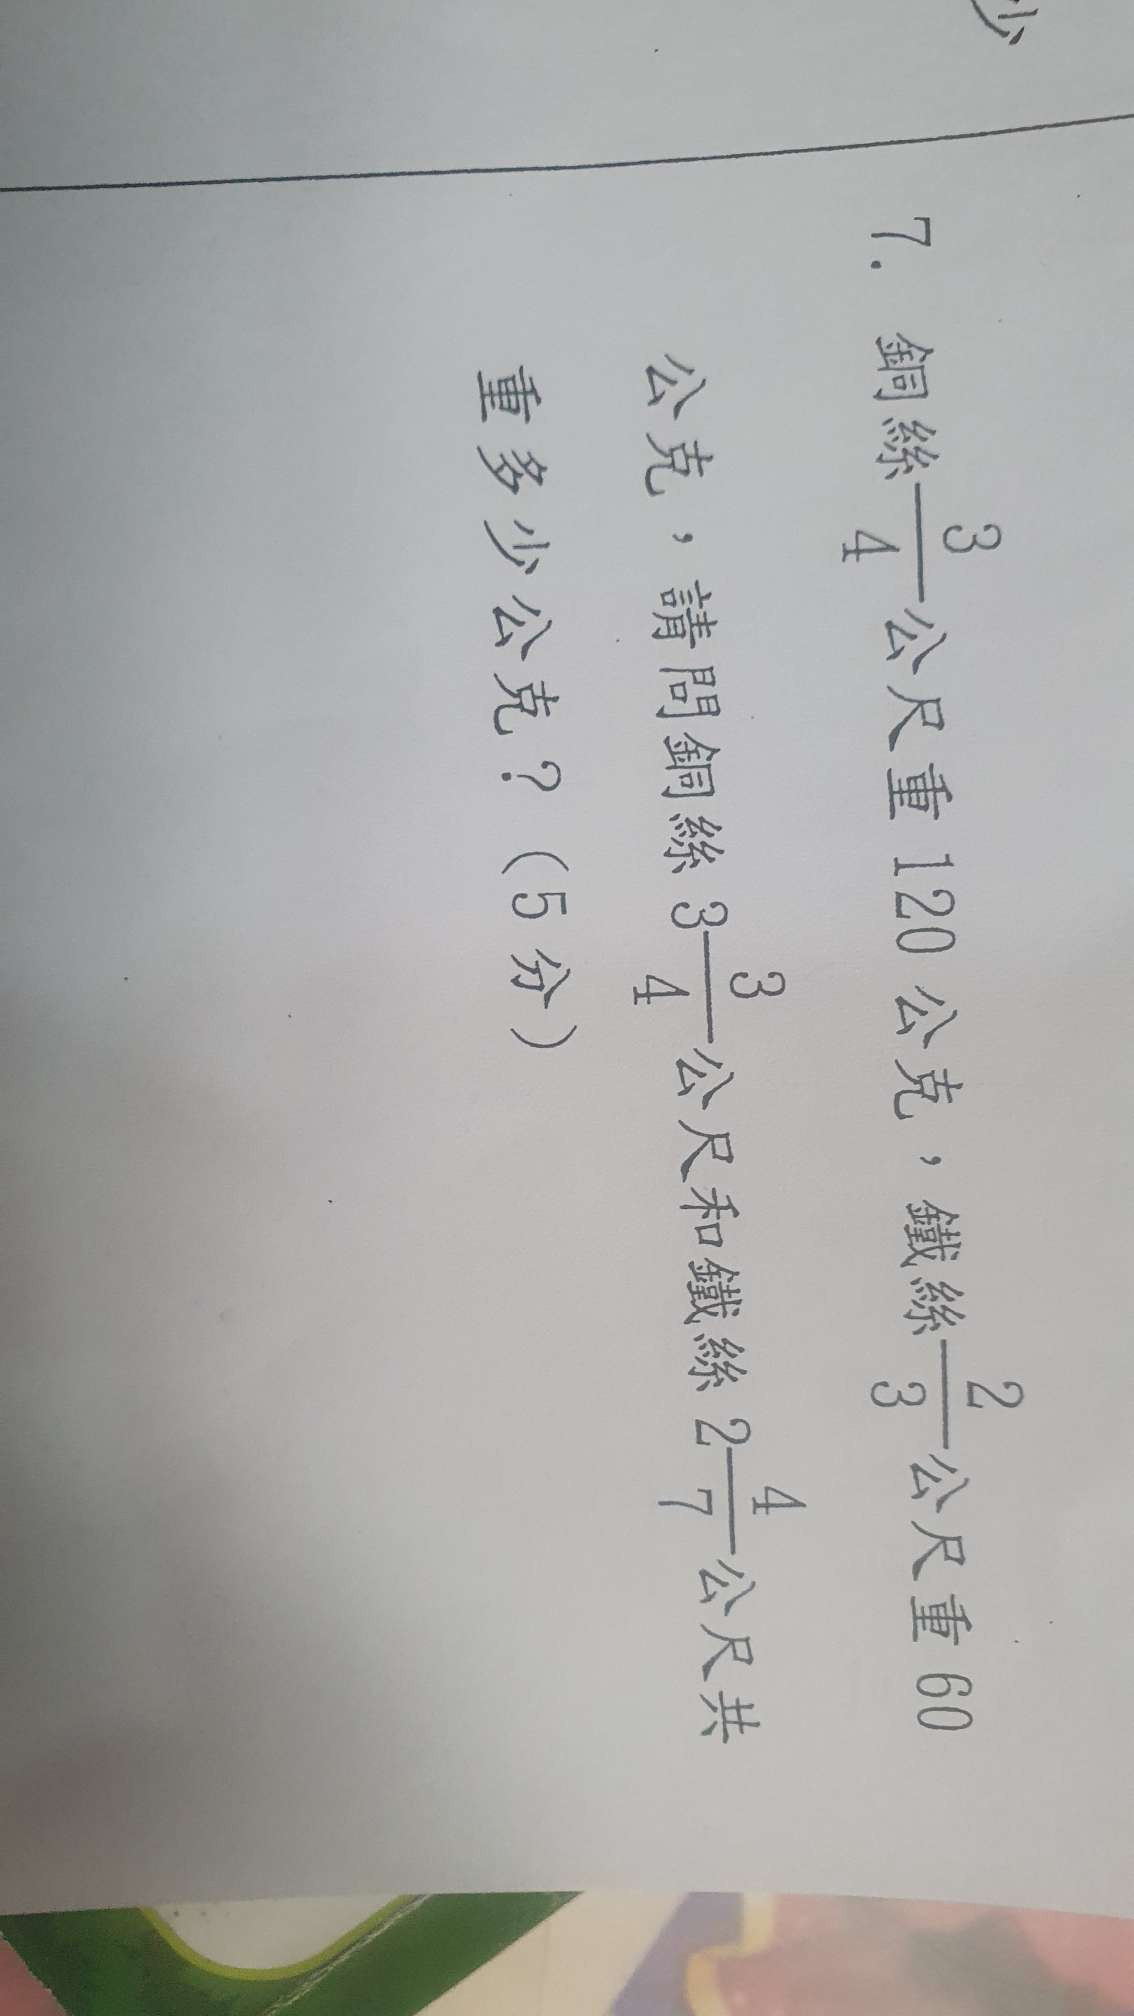 少
7. 銅絲3/4公尺重120公克，鐵絲2/3公尺重60
公克，請問銅絲3 3/4公尺和鐵絲2 4/7公尺共
重多少公克？（5分）